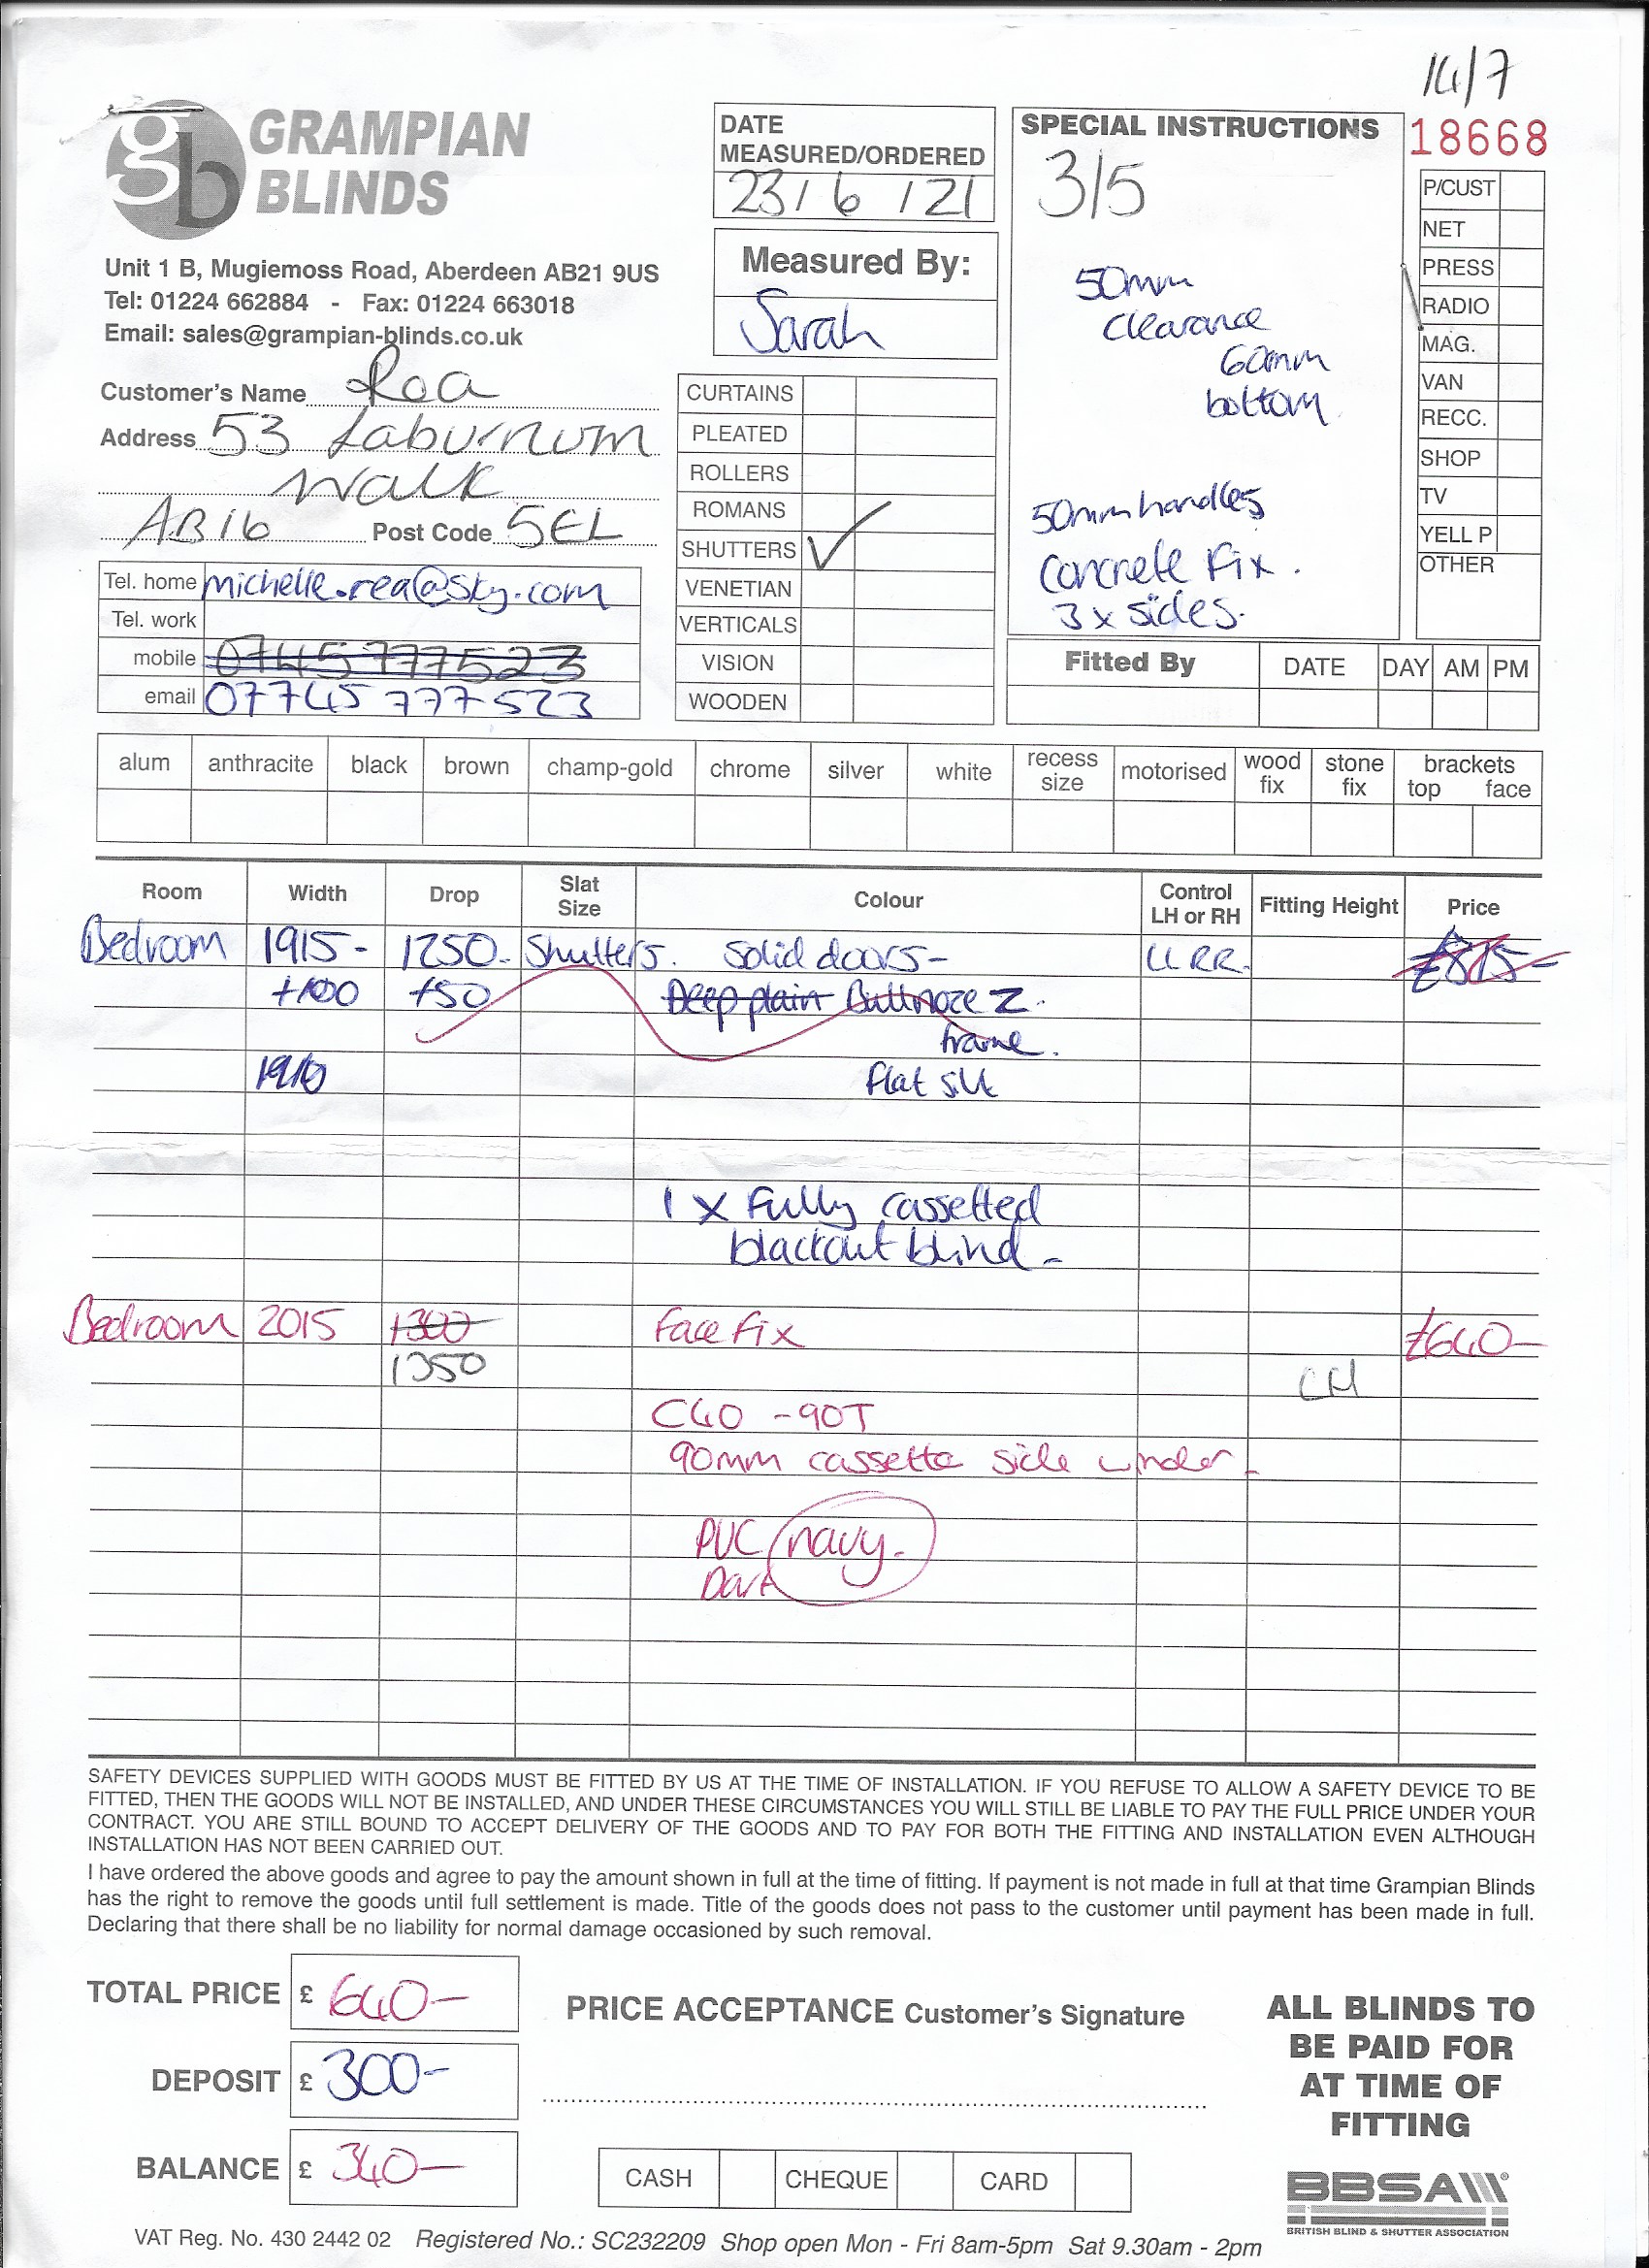 14/7
GRAMPIAN
BLINDS
gb
Unit 1 B, Mugiemoss Road, Aberdeen AB21 9US
Tel: 01224 662884 - Fax: 01224 663018
Email: sales@grampian-blinds.co.uk
Customer's Name Rea
Address 53 Laburnum
Walk
AB16 Post Code 5EL
Tel. home michelle.rea@sky.com
Tel. work
mobile 07745 777523
email 07745 777523
DATE
MEASURED/ORDERED
23/6/21
Measured By:
Sarah
CURTAINS
PLEATED
ROLLERS
ROMANS
SHUTTERS ✓
VENETIAN
VERTICALS
VISION
WOODEN
SPECIAL INSTRUCTIONS
3/5
50mm
clearance
60mm
bottom
50mm handles
concrete fix.
3 x sides.
18668
P/CUST
NET
PRESS
RADIO
MAG.
VAN
RECC.
SHOP
TV
YELL P
OTHER
Fitted By DATE DAY AM PM
alum anthracite black brown champ-gold chrome silver white recess size motorised wood fix stone fix brackets top face
Room Width Drop Slat Size Colour Control LH or RH Fitting Height Price
Bedroom 1915- 1250- Shutters. Solid doors- LLRR. £875-
+100 +50 Deep plain Bullnoze Z
frame.
1910 flat sill
1 x Fully cassetted
blackout blind -
Bedroom 2015 1300 Face fix £640-
1350 CH
C40 -90T
90mm cassette side winder
PVC navy-
Dark
SAFETY DEVICES SUPPLIED WITH GOODS MUST BE FITTED BY US AT THE TIME OF INSTALLATION. IF YOU REFUSE TO ALLOW A SAFETY DEVICE TO BE
FITTED, THEN THE GOODS WILL NOT BE INSTALLED, AND UNDER THESE CIRCUMSTANCES YOU WILL STILL BE LIABLE TO PAY THE FULL PRICE UNDER YOUR
CONTRACT. YOU ARE STILL BOUND TO ACCEPT DELIVERY OF THE GOODS AND TO PAY FOR BOTH THE FITTING AND INSTALLATION EVEN ALTHOUGH
INSTALLATION HAS NOT BEEN CARRIED OUT.
I have ordered the above goods and agree to pay the amount shown in full at the time of fitting. If payment is not made in full at that time Grampian Blinds
has the right to remove the goods until full settlement is made. Title of the goods does not pass to the customer until payment has been made in full.
Declaring that there shall be no liability for normal damage occasioned by such removal.
TOTAL PRICE £ 640-
DEPOSIT £ 300-
BALANCE £ 340-
PRICE ACCEPTANCE Customer's Signature
CASH CHEQUE CARD
ALL BLINDS TO
BE PAID FOR
AT TIME OF
FITTING
BBSA
BRITISH BLIND & SHUTTER ASSOCIATION
VAT Reg. No. 430 2442 02 Registered No.: SC232209 Shop open Mon - Fri 8am-5pm Sat 9.30am - 2pm